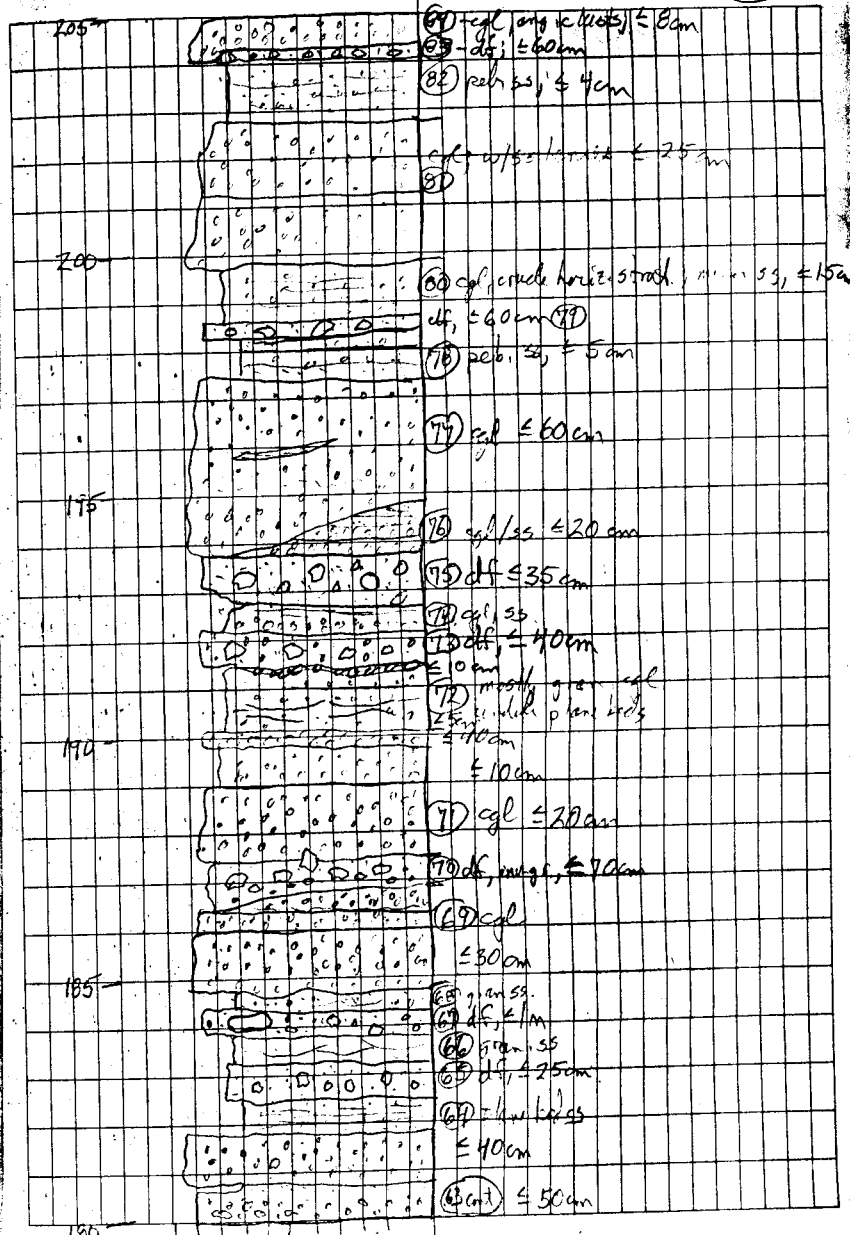 205
84 -cgl, ang clasts, ≤ 8cm
83 - df; ≤60cm
82 peb ss, ≤ 4cm
cgl, w/ss ≤ 25 cm
81
200
80 cgl, crude horiz. strat., ss, ≤15c
df, ≤60cm 79
78 peb. ss, ≤ 5cm
77 cgl ≤60cm
195
76 cgl/ss ≤20 cm
75 df ≤35cm
74 cgl, ss
73 df, ≤40cm
≤10cm
72 mostly gran cgl
plane beds
190
≤70cm
≤10cm
71 cgl ≤20cm
70 df, inv gr, ≤70cm
69 cgl
≤30cm
185
68 gran ss.
67 df, ≤1m
66 gran. ss
65 df, ≤25cm
64
≤40cm
63 cont ≤50cm
180